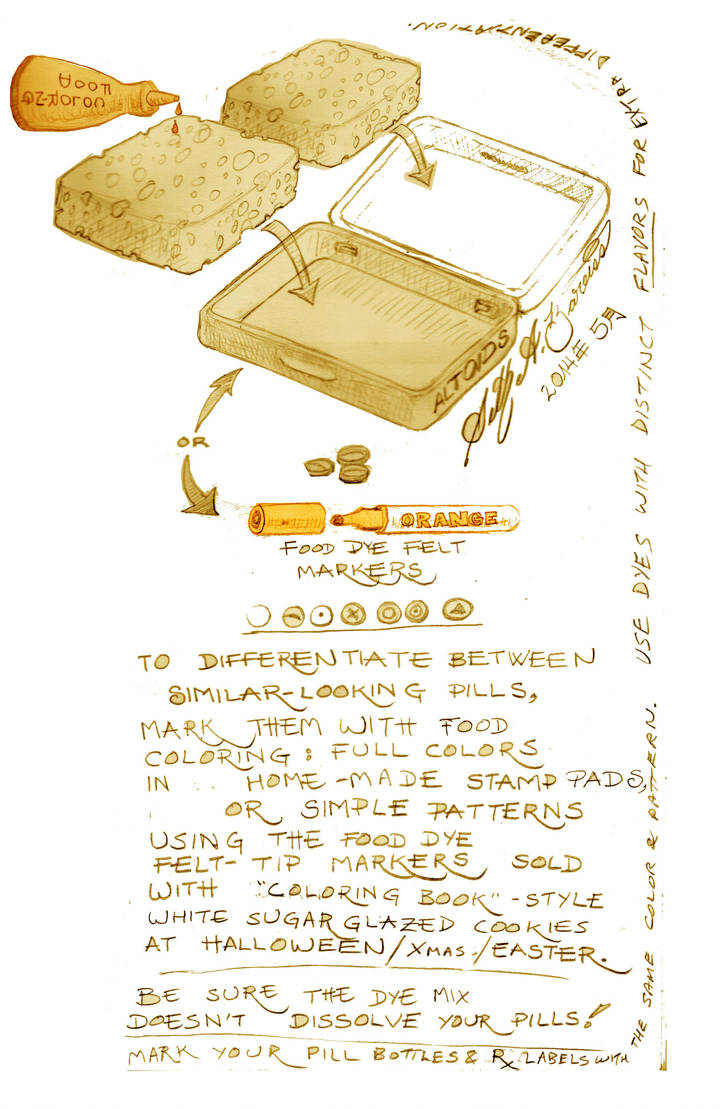 ALTOIDS
2014年 5月
OR
ORANGE
FOOD DYE FELT
MARKERS
TO DIFFERENTIATE BETWEEN
SIMILAR-LOOKING PILLS,
MARK THEM WITH FOOD
COLORING: FULL COLORS
IN HOME-MADE STAMP PADS,
OR SIMPLE PATTERNS
USING THE FOOD DYE
FELT-TIP MARKERS SOLD
WITH "COLORING BOOK"-STYLE
WHITE SUGAR GLAZED COOKIES
AT HALLOWEEN/XMAS/EASTER.
BE SURE THE DYE MIX
DOESN'T DISSOLVE YOUR PILLS!
MARK YOUR PILL BOTTLES & Rx LABELS WITH
THE SAME COLOR & PATTERN. USE DYES WITH DISTINCT FLAVORS FOR EXTRA DIFFERENTIATION.